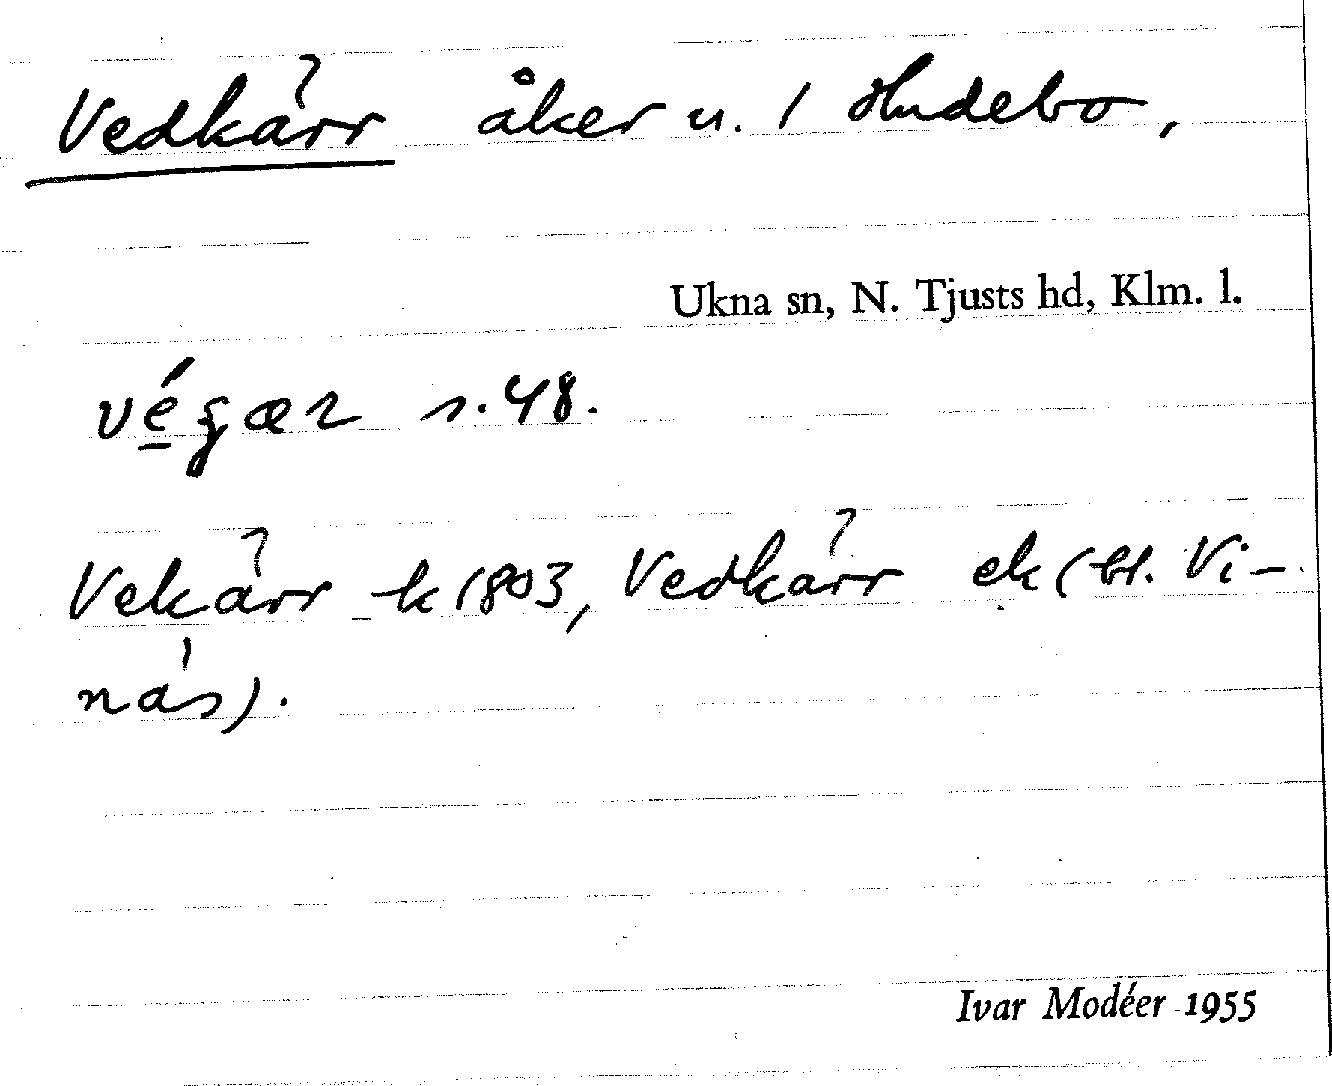 Vedkärr åker u. 1 Hudebo,
Ukna sn, N. Tjusts hd, Klm. l.
végær s. 48.
Vekärr k 1803, Vedkärr ek (bl. Vi-
näs).
Ivar Modéer 1955